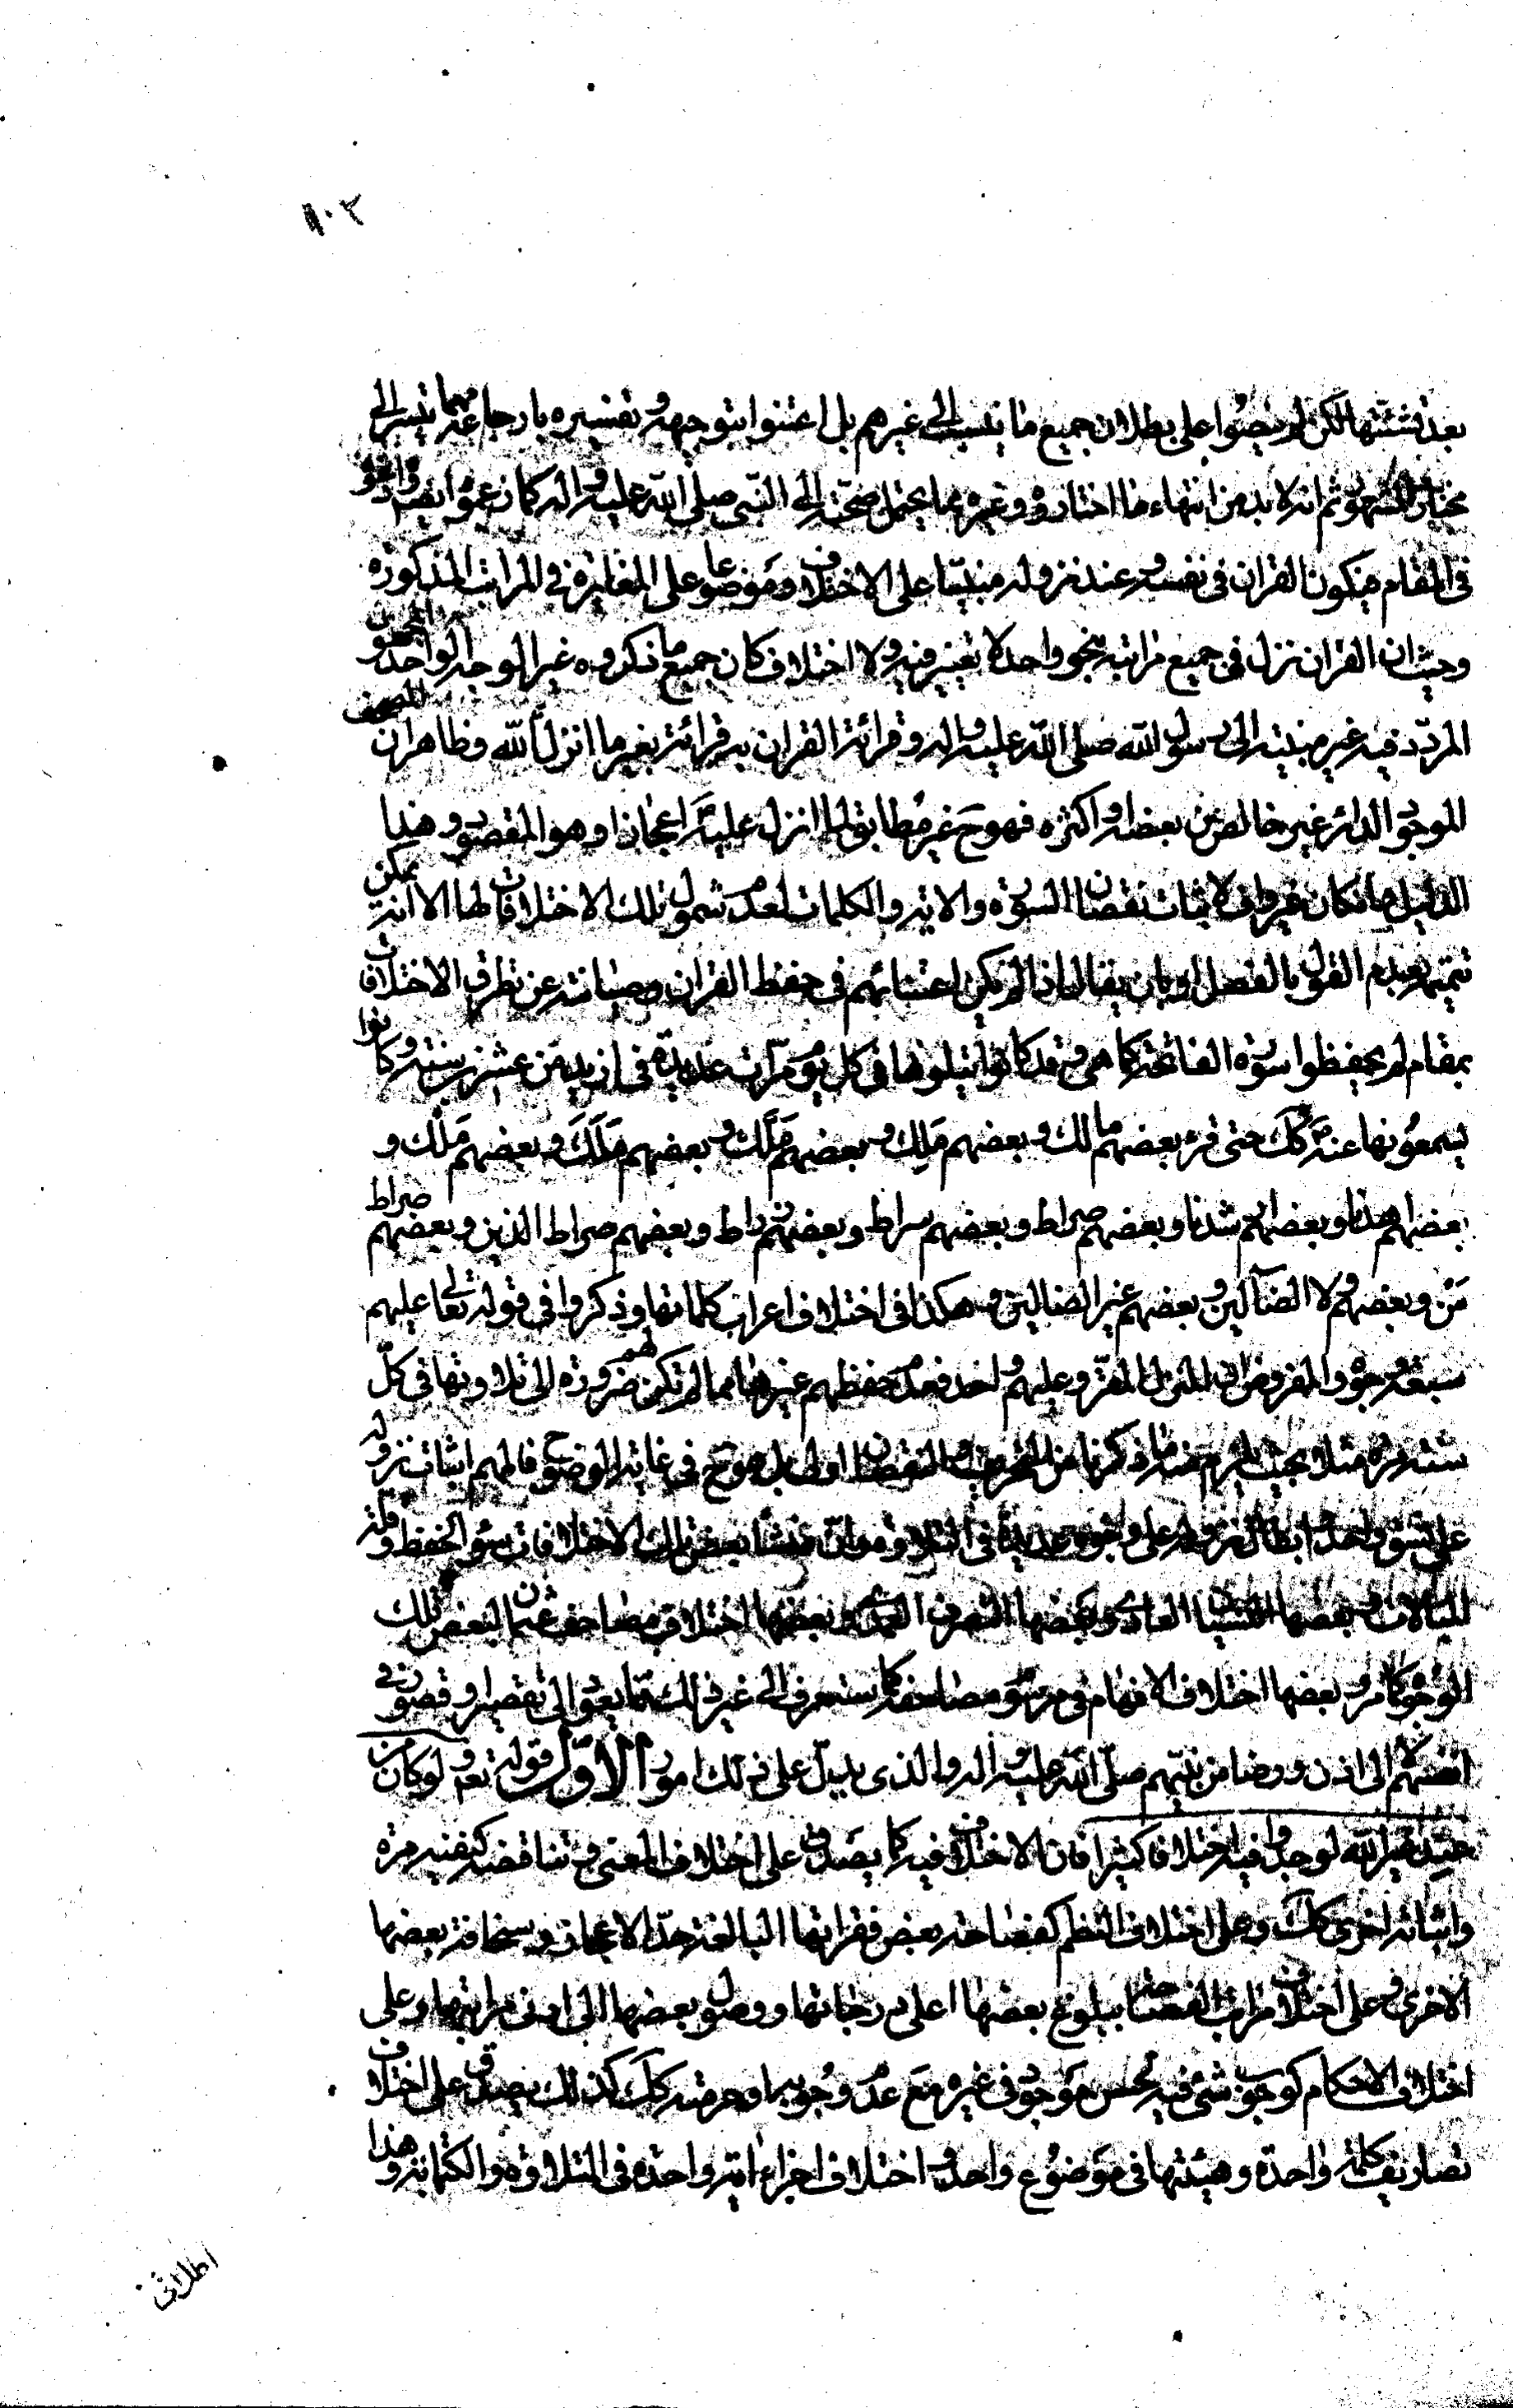 ١٠٢
بعد تشتتها لكن لم يجتنبوا على بطلان جميع ما ينسب الى غيرهم بل اعتنوا بتوجيهه و تفسيره بارجاعه مهما تيسر الى
مختار المشهور ثم انه لا بد من انتهاء ما اختاروه وغيره مما يحتمل صحته الى النبى صلى الله عليه واله كما زعموا
فى المقام فيكون القران فى نفسه وعند نزوله مبنيّا على الاختلاف وموضوعا على المغايرة فى المراتب المذكورة
وحيث ان القران نزل فى جميع مراتبه بنحو واحد لا تغيير فيه ولا اختلاف كان جميع ما ذكروه غير الوجه الواحد
المردّد فيه غير منتهٍ الى رسول الله صلى الله عليه واله وقرائة القران به قرائة بغير ما انزل الله وظاهر ان المصحف
الموجود الدائر غير خالص من بعضه او اكثره فهو ح غير مطابق لما انزل عليه ص اعجازا وهو المقصود وهذا
الدليل وان كان غير واف لاثبات نقصان السورة والاية والكلمات لعدم شمول تلك الاختلافات لها الا انه يمكن
تتميمه بعدم القول بالفصل او بان يقال اذا لم يكن اعتنائهم فى حفظ القران وصيانته عن تطرق الاختلاف
بمقام لم يحفظوا سورة الفاتحة كما هى وقد كانوا يتلونها فى كل يوم مرّات عديدة فى ازيد من عشرين سنة وكانوا
يسمعونها عنه ص كك حتى قرء بعضهم مالك و بعضهم مَلِك و بعضهم مَلَّك و بعضهم مَلَكَ و بعضهم مَلْك و
بعضهم اهدنا و بعضهم ارشدنا و بعضهم صراط و بعضهم سراط و بعضهم زراط و بعضهم صراط الذين و بعضهم صراط
مَن و بعضهم ولا الضآلين و بعضهم غير الضالين و هكذا فى اختلاف اعراب كلماتها و ذكروا فى قوله تعالى عليهم
سبعة وجوه والمفروض ان المنزل المقرّو عليهم واحد فعدم حفظهم غيرها مما لم تكن لهم ضرورة الى تلاوتها فى كلّ
سنة مرة مثلا بحيث يلزم منه ما ذكرنا من التحريف والنقصان اولى بل هو ح فى غاية الوضوح فالمهم اثبات نزوله
على نسق واحد وابطال نزوله على وجوه عديدة فى التلاوة وان منشأ بعض تلك الاختلافات سوء الحفظ و قلة
المبالات و بعضها النسيان العادى و بعضها التصرف العمدى و بعضها اختلاف مصاحف عثمان لبعض تلك
الوجوه كما مر و بعضها اختلاف الافهام فى مرسوم مصاحفه كما ستعرف الى غير ذلك مما يعود الى تقصير او قصور فى
انفسهم لا الى اذن و رضا من نبيهم صلّى الله عليه واله والذى يدلّ على ذلك امور الاوّل قوله تعالى ولو كان من
عند غير الله لوجدوا فيه اختلافا كثيرا فان الاختلاف فيه كما يصدق على اختلاف المعنى وتناقضه كنفيه مرة
واثباته اخرى كك و على اختلاف النظم كفصاحة بعض فقراتها البالغة حدّ الاعجاز و سخافة بعضها
الاخرى و على اختلاف مراتب الفصاحة ببلوغ بعضها اعلى درجاتها و وصول بعضها الى ادنى مراتبها و على
اختلاف الاحكام كوجوب شئ فيه لحسن موجود فى غيره مع عدم وجوبه او حرمته كك كذلك يصدق على اختلاف
تصاريف كلمة واحدة وهيئتها فى موضوع واحد و اختلاف اجزاء اية واحدة فى التلاوة والكتابة وهذا
اطلاق